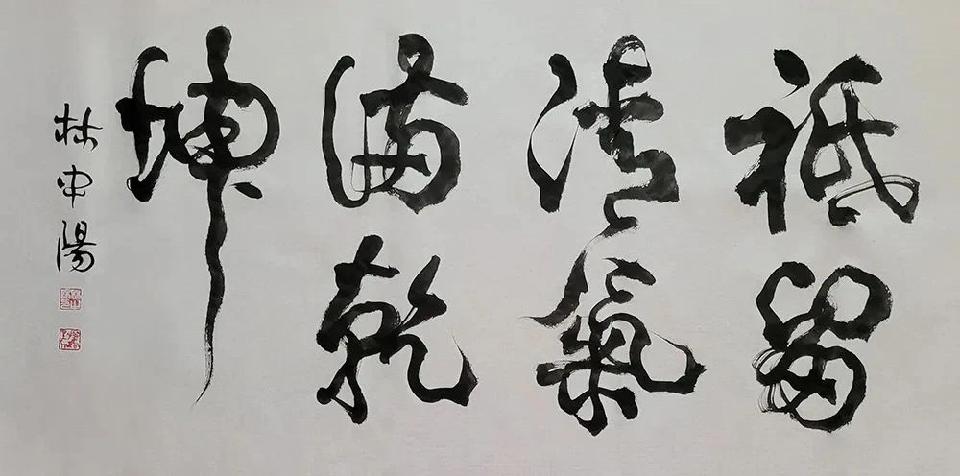 祗留
清氣
滿乾
坤
林中陽